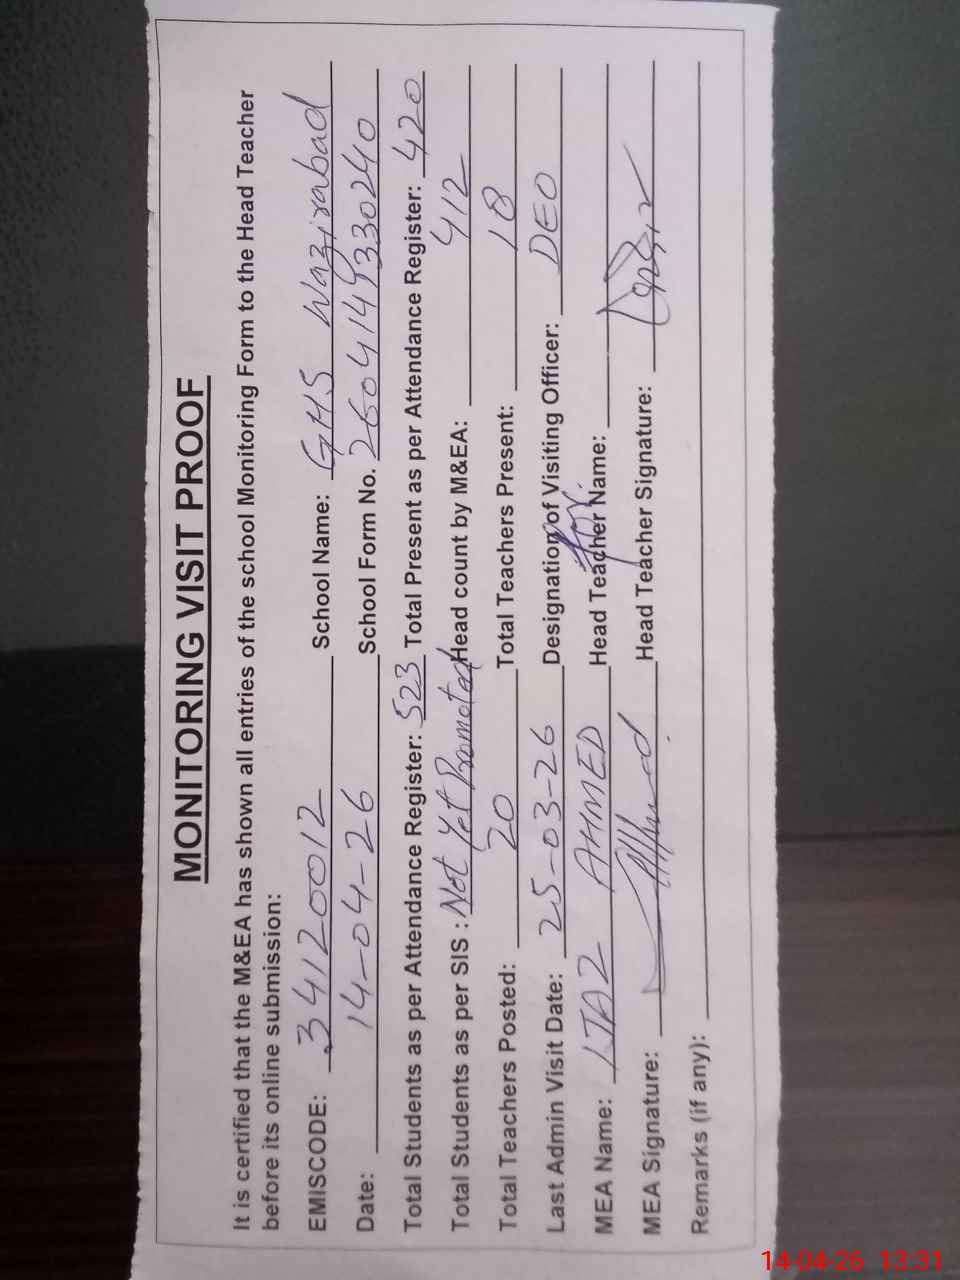 MONITORING VISIT PROOF
It is certified that the M&EA has shown all entries of the school Monitoring Form to the Head Teacher
before its online submission:
EMISCODE: 34120012 School Name: GHS Wazirabad
Date: 14-04-26 School Form No. 2604149330240
Total Students as per Attendance Register: 523 Total Present as per Attendance Register: 420
Total Students as per SIS : Not Yet Promoted Head count by M&EA: 412
Total Teachers Posted: 20 Total Teachers Present: 18
Last Admin Visit Date: 25-03-26 Designation of Visiting Officer: DEO
MEA Name: IJAZ AHMED Head Teacher Name:
MEA Signature: Head Teacher Signature:
Remarks (if any):
14-04-26 13:31